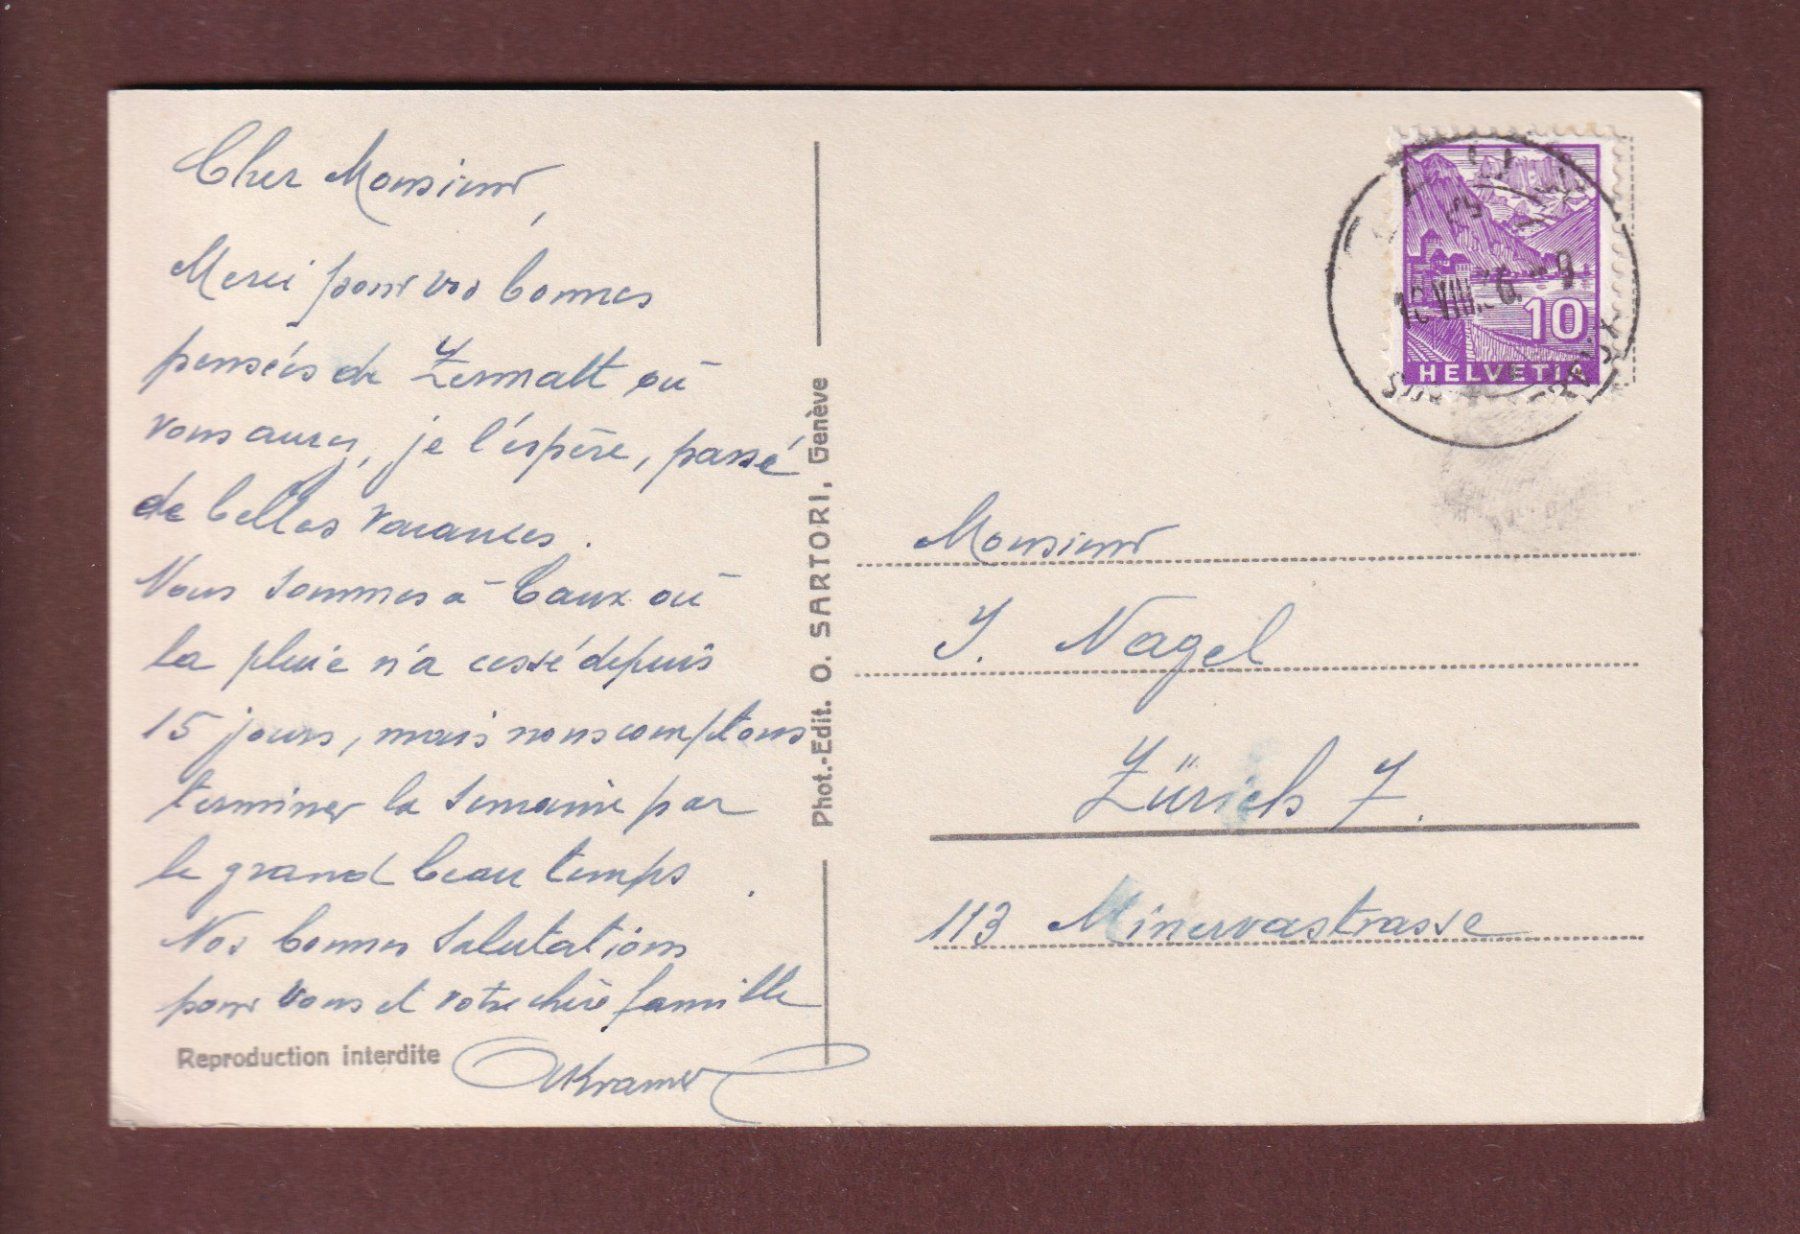 Cher Monsieur,
Merci pour vos bonnes
pensées de Zermatt où
vous aurez, je l'espère, passé
de belles vacances.
Nous sommes à Caux où
la pluie n'a cessé depuis
15 jours, mais nous comptons
terminer la semaine par
le grand beau temps.
Nos bonnes salutations
pour vous et votre chère famille
Kramer
Reproduction interdite
Phot.-Edit. O. SARTORI, Genève
10
HELVETIA
CAUX
SUR MONTREUX
VIII.36. 9
Monsieur
J. Nagel
Zürich 7.
113 Minervastrasse